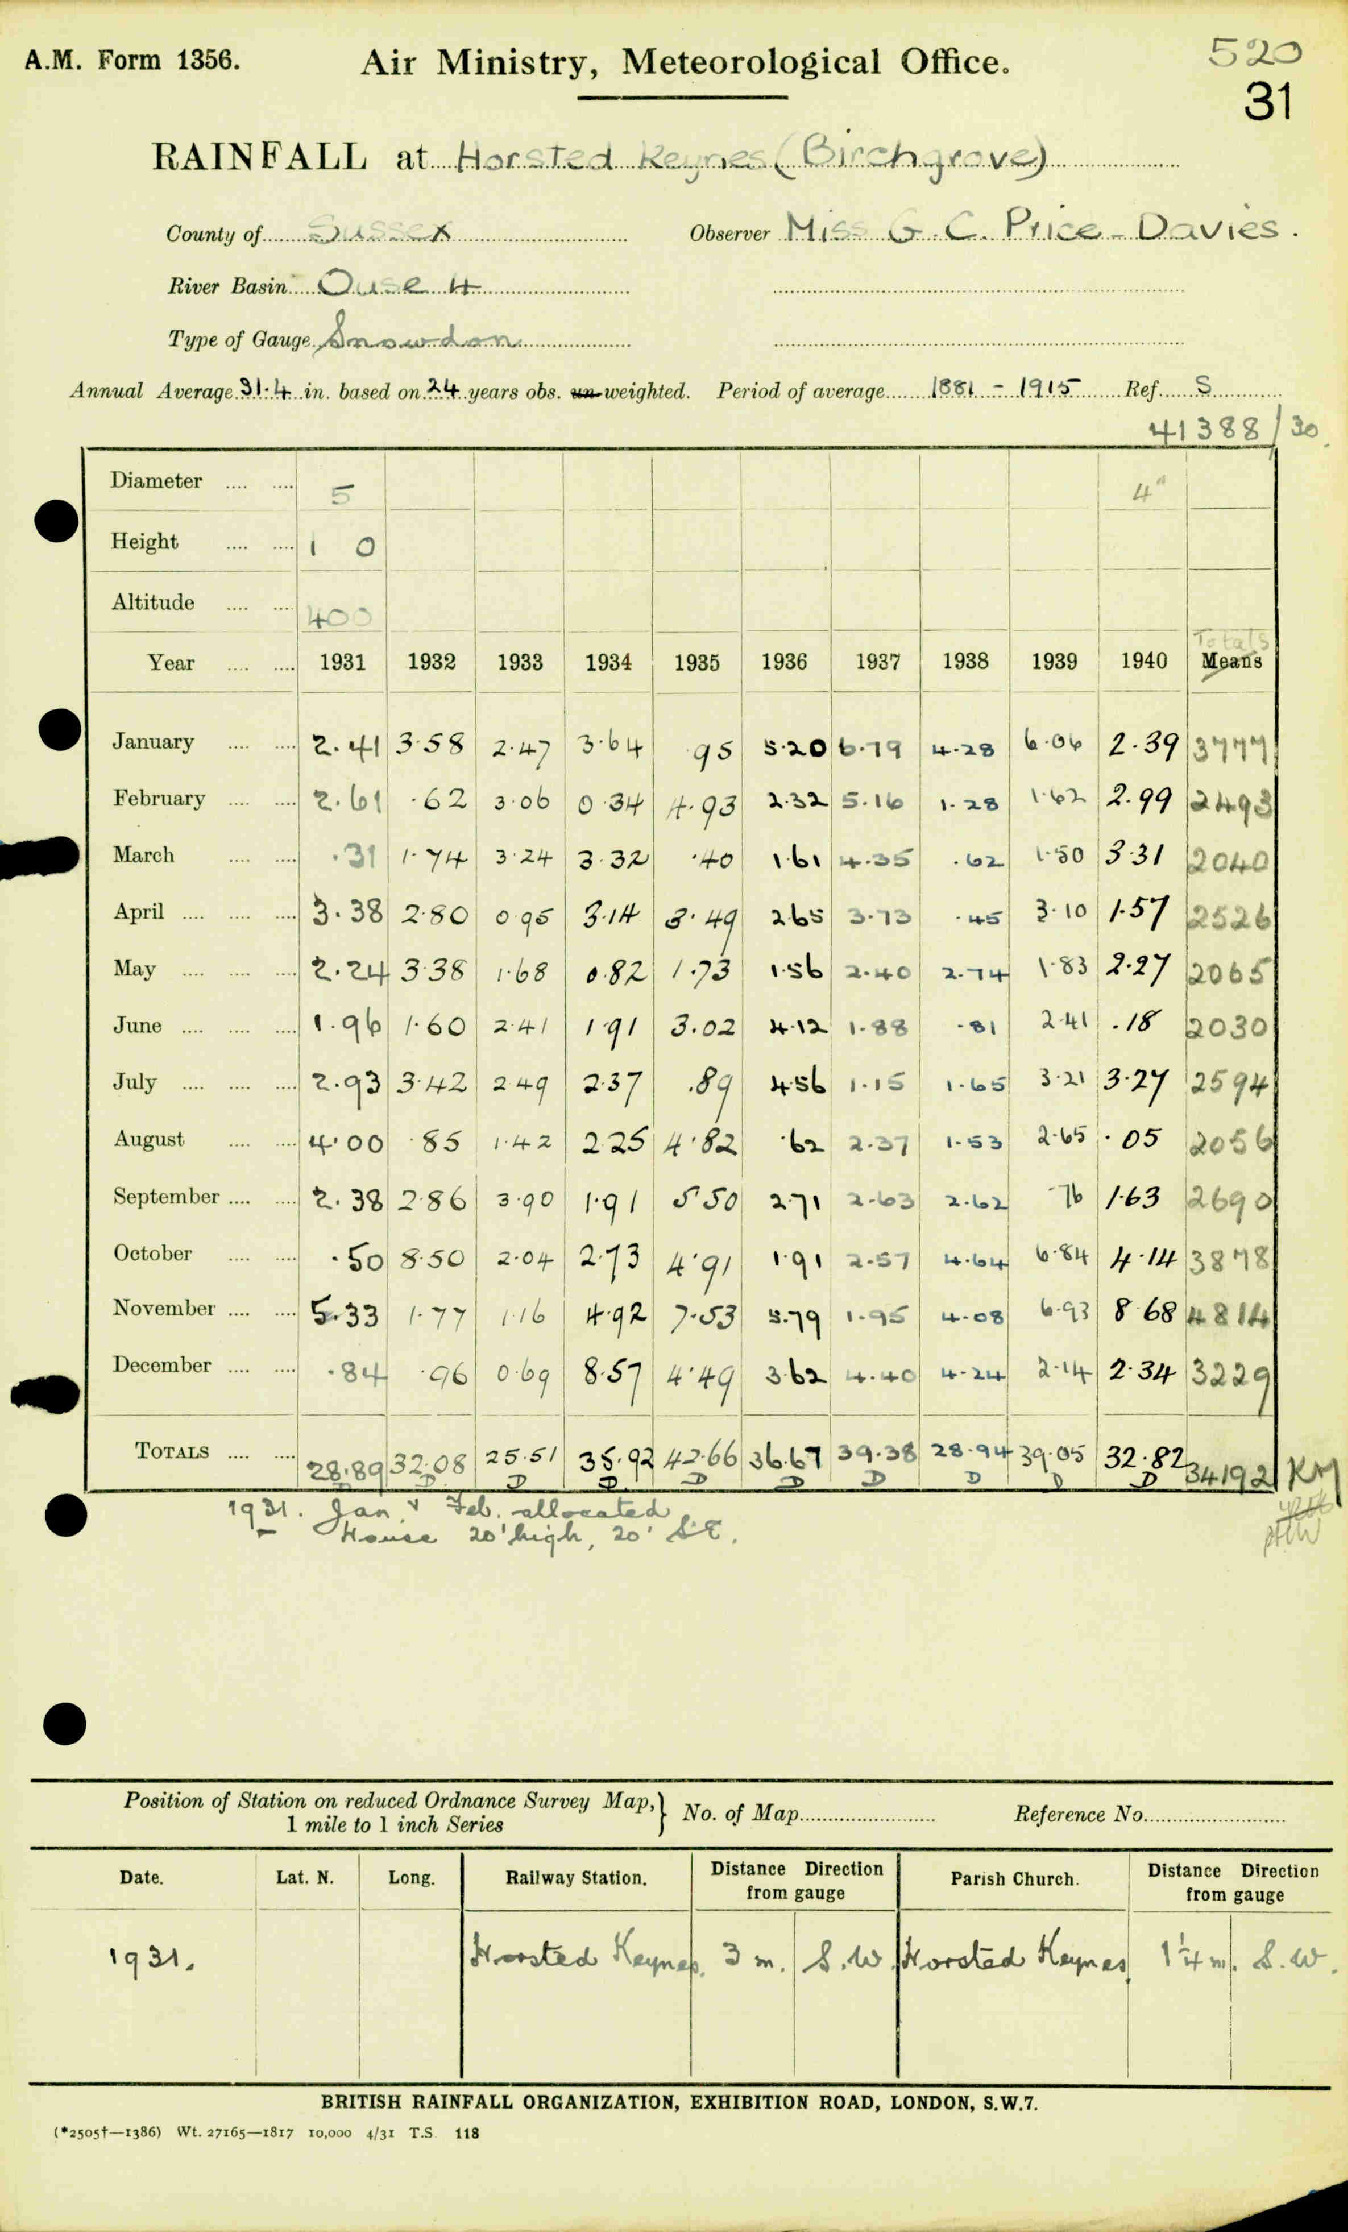 A.M. Form 1356.
Air Ministry, Meteorological Office.
520
31
RAINFALL at Horsted Keynes (Birchgrove)
County of Sussex Observer Miss G. C. Price-Davies.
River Basin Ouse 4
Type of Gauge Snowdon
Annual Average 31.4 in. based on 24 years obs. un-weighted. Period of average 1881 - 1915 Ref. S
41388/30
Diameter 5 4"
Height 1 0
Altitude 400
Totals
Year 1931 1932 1933 1934 1935 1936 1937 1938 1939 1940 Means
January 2.41 3.58 2.47 3.64 .95 5.20 6.79 4.28 6.06 2.39 3777
February 2.61 .62 3.06 0.34 4.93 2.32 5.16 1.28 1.62 2.99 2493
March .31 1.74 3.24 3.32 .40 1.61 4.35 .62 1.50 3.31 2040
April 3.38 2.80 0.95 3.14 3.49 2.65 3.73 .45 3.10 1.57 2526
May 2.24 3.38 1.68 0.82 1.73 1.56 2.40 2.74 1.83 2.27 2065
June 1.96 1.60 2.41 1.91 3.02 4.12 1.88 .81 2.41 .18 2030
July 2.93 3.42 2.49 2.37 .89 4.56 1.15 1.65 3.21 3.27 2594
August 4.00 .85 1.42 2.25 4.82 .62 2.37 1.53 2.65 .05 2056
September 2.38 2.86 3.90 1.91 5.50 2.71 2.63 2.62 .76 1.63 2690
October .50 8.50 2.04 2.73 4.91 1.91 2.57 4.64 6.84 4.14 3878
November 5.33 1.77 1.16 4.92 7.53 5.79 1.95 4.08 6.93 8.68 4814
December .84 .96 0.69 8.57 4.49 3.62 4.40 4.24 2.14 2.34 3229
TOTALS 28.89 32.08 25.51 35.92 42.66 36.67 39.38 28.94 39.05 32.82 34192 KM
D D D D D D D D D D
1931. Jan & Feb. allocated
House 20' high, 20' S.E.
Position of Station on reduced Ordnance Survey Map, 1 mile to 1 inch Series } No. of Map Reference No.
Date. Lat. N. Long. Railway Station. Distance Direction from gauge Parish Church. Distance Direction from gauge
1931. Horsted Keynes. 3 m. S.W. Horsted Keynes 1¼ m. S.W.
BRITISH RAINFALL ORGANIZATION, EXHIBITION ROAD, LONDON, S.W.7.
(*2505†—1386) Wt. 27165—1817 10,000 4/31 T.S. 118